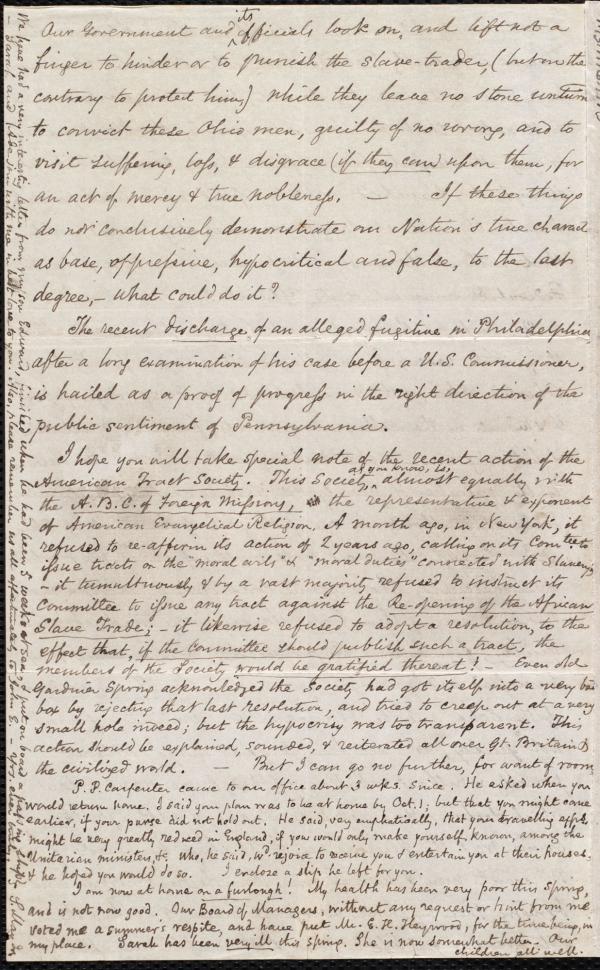 its
Our Government and officials look on, and lift not a
finger to hinder or to punish the slave-trader, (but on the
contrary to protect him,) while they leave no stone unturn
to convict these Ohio men, guilty of no wrong, and to
visit suffering, loss, & disgrace (if they can) upon them, for
an act of mercy & true nobleness. — If these things
do not conclusively demonstrate our Nation's true charact
as base, oppressive, hypocritical and false, to the last
degree, – what could do it?
The recent discharge of an alleged fugitive in Philadelphia,
after a long examination of his case before a U.S. Commissioner,
is hailed as a proof of progress in the right direction of the
public sentiment of Pennsylvania.
I hope you will take special note of the recent action of the
as you know, is,
American Tract Society. This Society, almost equally with
the A.B.C. of Foreign Missions, the representative & exponent
of American Evangelical Religion. A month ago, in New York, it
refused to re-affirm its action of 2 years ago, calling on its Comtee to
issue tracts on the "moral evils" & "moral duties" connected with Slavery;
– it tumultuously & by a vast majority refused to instruct its
Committee to issue any tract against the Re-opening of the African
Slave Trade; – it likewise refused to adopt a resolution, to the
effect that, if the Committee should publish such a tract, the
members of the Society would be gratified thereat! – Even old
Gardiner Spring acknowledged the Society had got itself into a very bad
box by rejecting that last resolution, and tried to creep out at a very
small hole indeed; but the hypocrisy was too transparent. This
action should be explained, sounded, & reiterated all over Gt. Britain &
the civilized world. — But I can go no further, for want of room.
P. P. Carpenter came to our office about 3 wks. since. He asked when you
would return home. I said your plan was to be at home by Oct. 1; but that you might come
earlier, if your purse did not hold out. He said, very emphatically, that your travelling exps.
might be very greatly reduced in England, if you would only make yourself known, among the
Unitarian ministers, &c. who, he said, wd. rejoice to receive you & entertain you at their houses,
& he hoped you would do so. I enclose a slip he left for you.
I am now at home on a furlough! My health has been very poor this Spring,
and is not now good. Our Board of Managers, without any request or hint from me
voted me a summer's respite, and have put Mr. E. H. Heywood, for the time being, in
my place. Sarah has been very ill this spring. She is now somewhat better. Our
children all well.
We have had a very interesting letter from my son Edward, finished when he had been 5 weeks at sea, & put on board a passing ship.
Sarah and join with me in best love to you. Also, please remember us all affectionately to John E. Yrs. ever truly, S. May Jr.